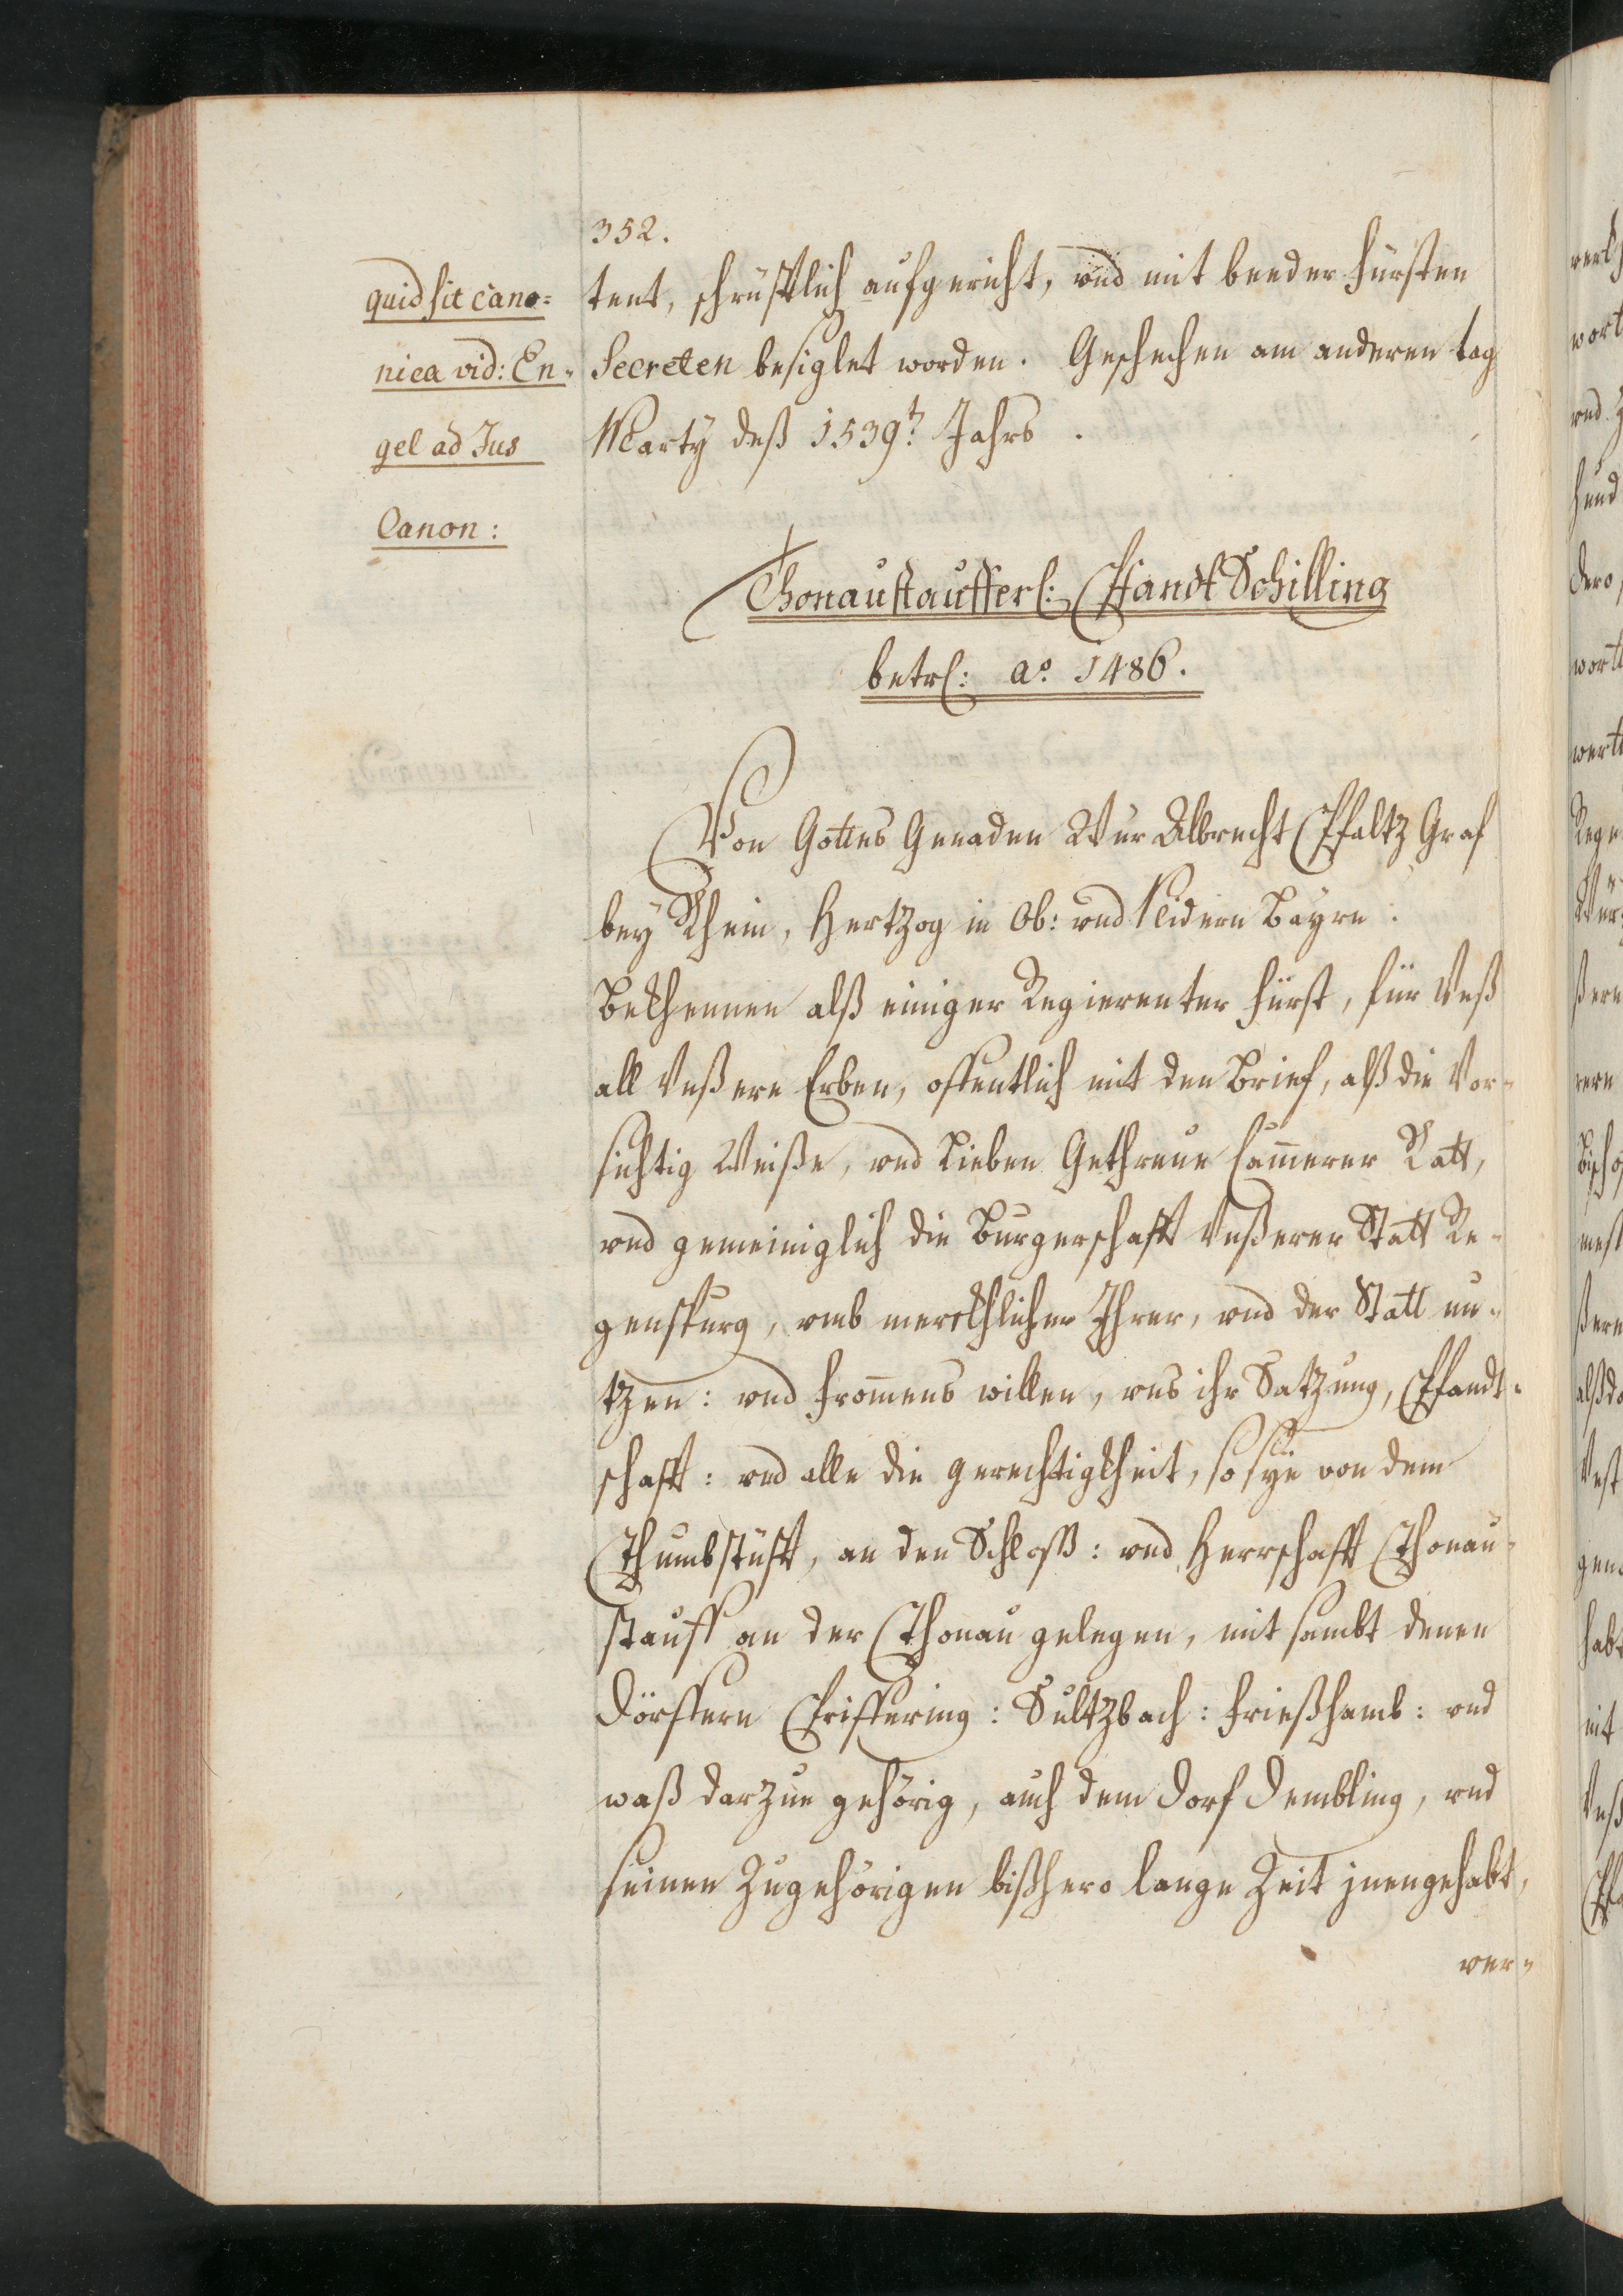 352.
quid sit cano=
nica vid: En=
gel ad Jus
Canon:
tent, schrüfftlich aufgericht, vnd mit beeder Fürsten
Secreten besiglet worden. Geschechen am anderen tag
Marty deß 1539t: Jahrs.
Thonaustaufferl: Pfandt Schilling
betrl: ao. 1486.
Von Gottes Genaden Wür Albrecht Pfaltz Graf
bey Rhein, Hertzog in Ob: vnd Nidern Bayrn:
Bekhennen alß einiger Regierenter Fürst, für Vnß
all Vnßere Erben, offentlich mit den Brief, alß die Vor-
sichtig Weiße, vnd Lieben Gethreue Cam̄erer Ratt,
vnd gemeiniglich die Burgerschafft Vnßerer Statt Re-
genspurg, vmb merckhlicher Ihrer, vnd der Statt nu-
tzen: vnd from̄ens willen, vns ihr Satzung, Pfandt-
schafft: vnd alle die gerechtigkheit, so sye von dem
Thumbstüfft, an den Schloß: vnd Herrschafft Thonau-
stauff an der Thonau gelegen, mit sambt denen
Dörffern Eriffering: Sultzbach: Frießhamb: vnd
waß darzue gehörig, auch dem Dorf Dembling, vnd
seinen Zugehörigen bißhero lange Zeit jnengehabt,
ver-